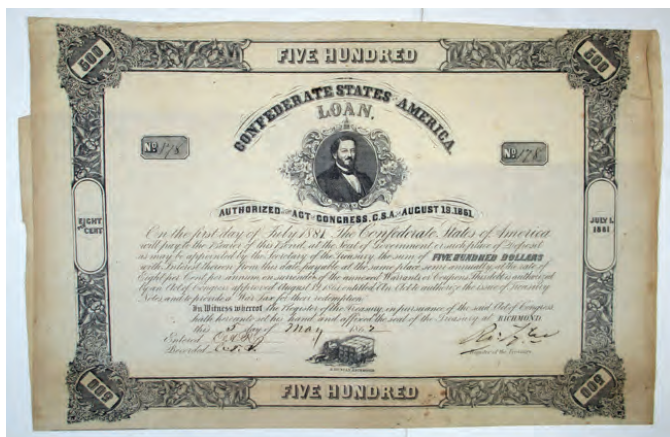 500
FIVE HUNDRED
500
CONFEDERATE STATES AMERICA.
LOAN.
No 178
No 178
AUTHORIZED BY ACT OF CONGRESS, C.S.A. OF AUGUST 19, 1861.
EIGHT PER CENT
JULY 1. 1881
On the first day of July 1881 The Confederate States of America
will pay to the Bearer of this Bond, at the Seat of Government or such place of Deposit
as may be appointed by the Secretary of the Treasury, the sum of FIVE HUNDRED DOLLARS
with Interest thereon from this date, payable at the same place semi annually, at the rate of
Eight per Cent per annum on surrender of the annexed Warrants or Coupons. This debt is authorized
by an Act of Congress approved August 19, 1861, entitled An Act to authorize the issue of Treasury
Notes, and to provide a War Tax for their redemption.
In Witness whereof the Register of the Treasury, in pursuance of the said Act of Congress
hath hereunto set his hand and affixed the seal of the Treasury at RICHMOND
this 3 day of May 1862
Entered
Recorded
Register of the Treasury
500
FIVE HUNDRED
500